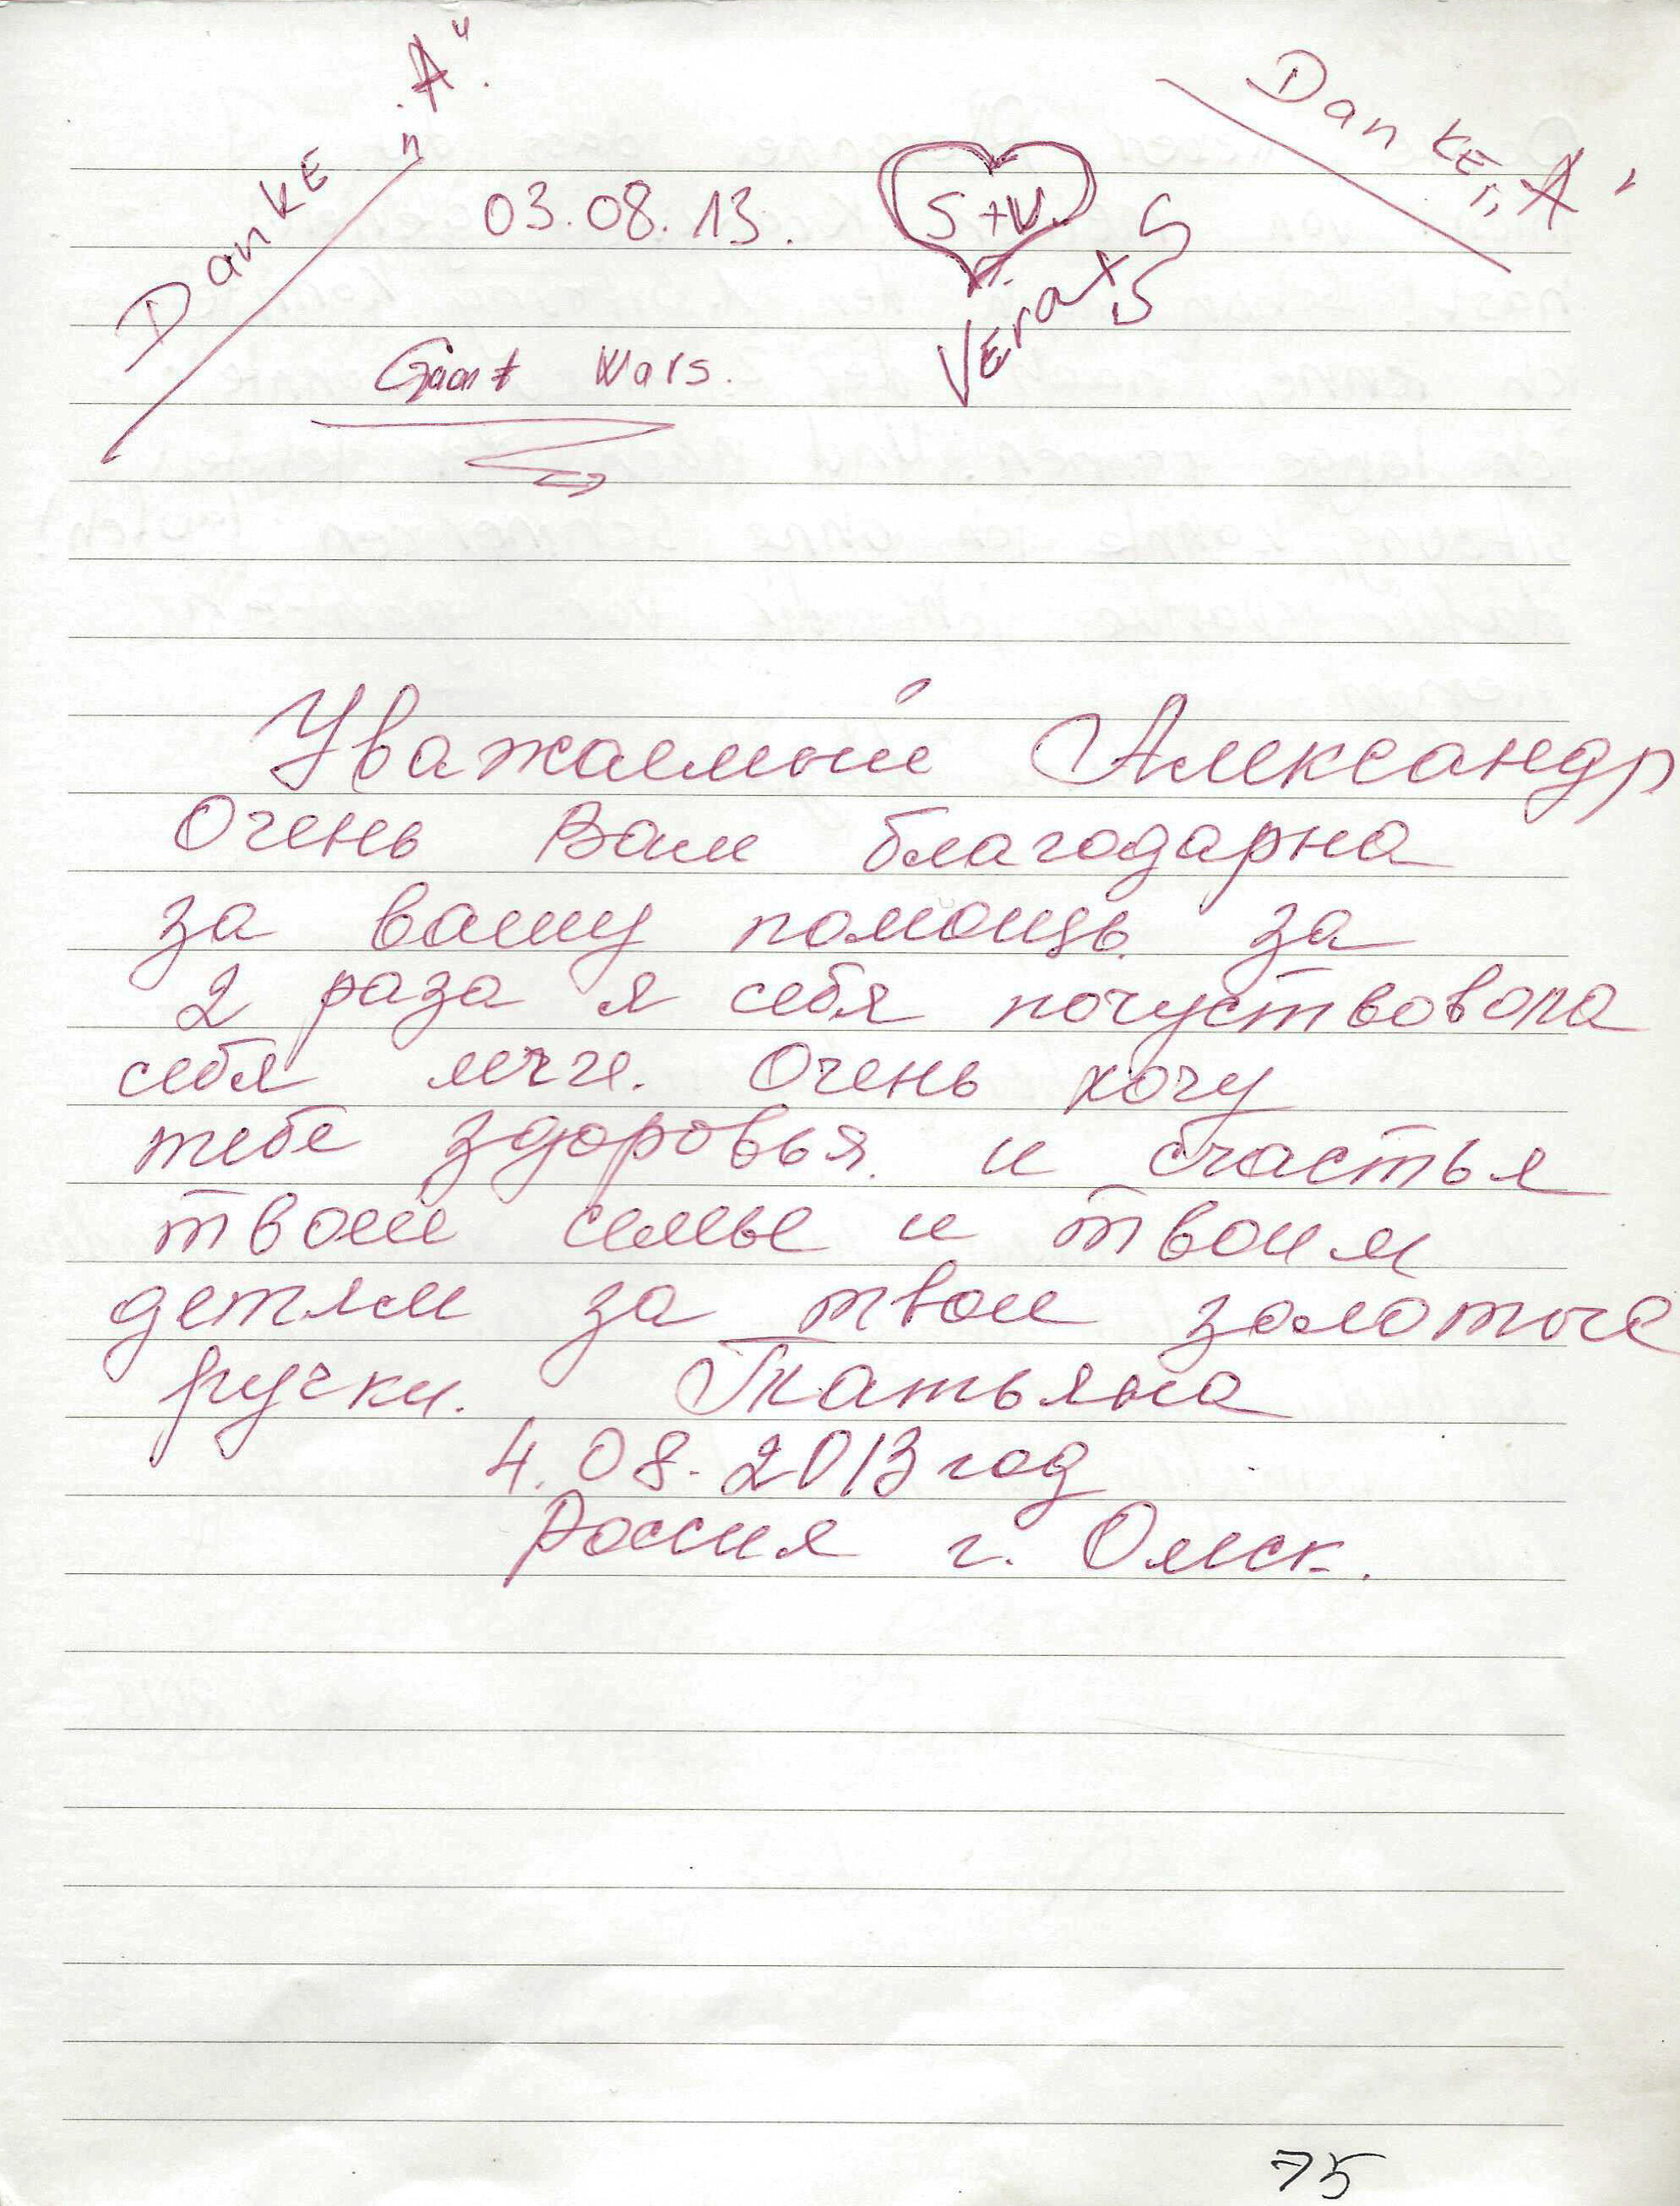 Danke „A“
Danke „A“
03.08.13.
S+V.
Vera x S
Giant Wars.
Уважаемый Александр
Очень Вам благодарна
за вашу помощь. за
2 раза я себя почуствовола
себя легче. Очень хочу
тебе здоровья. и счастья
твоей семье и твоим
детям за твои золотые
ручки. Татьяна
4.08.2013 год
Россия г. Омск.
75